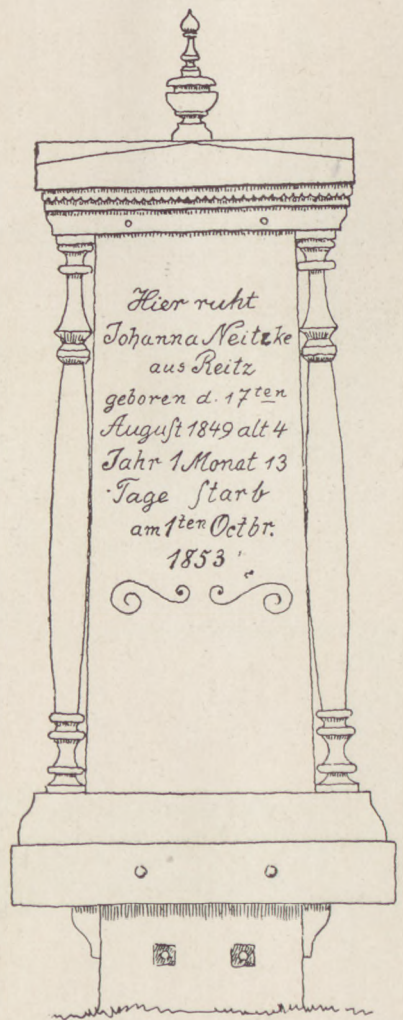 Hier ruht
Johanna Neitzke
aus Reitz
geboren d. 17ten
Auguſt 1849 alt 4
Jahr 1 Monat 13
Tage ſtarb
am 1ten Octbr.
1853